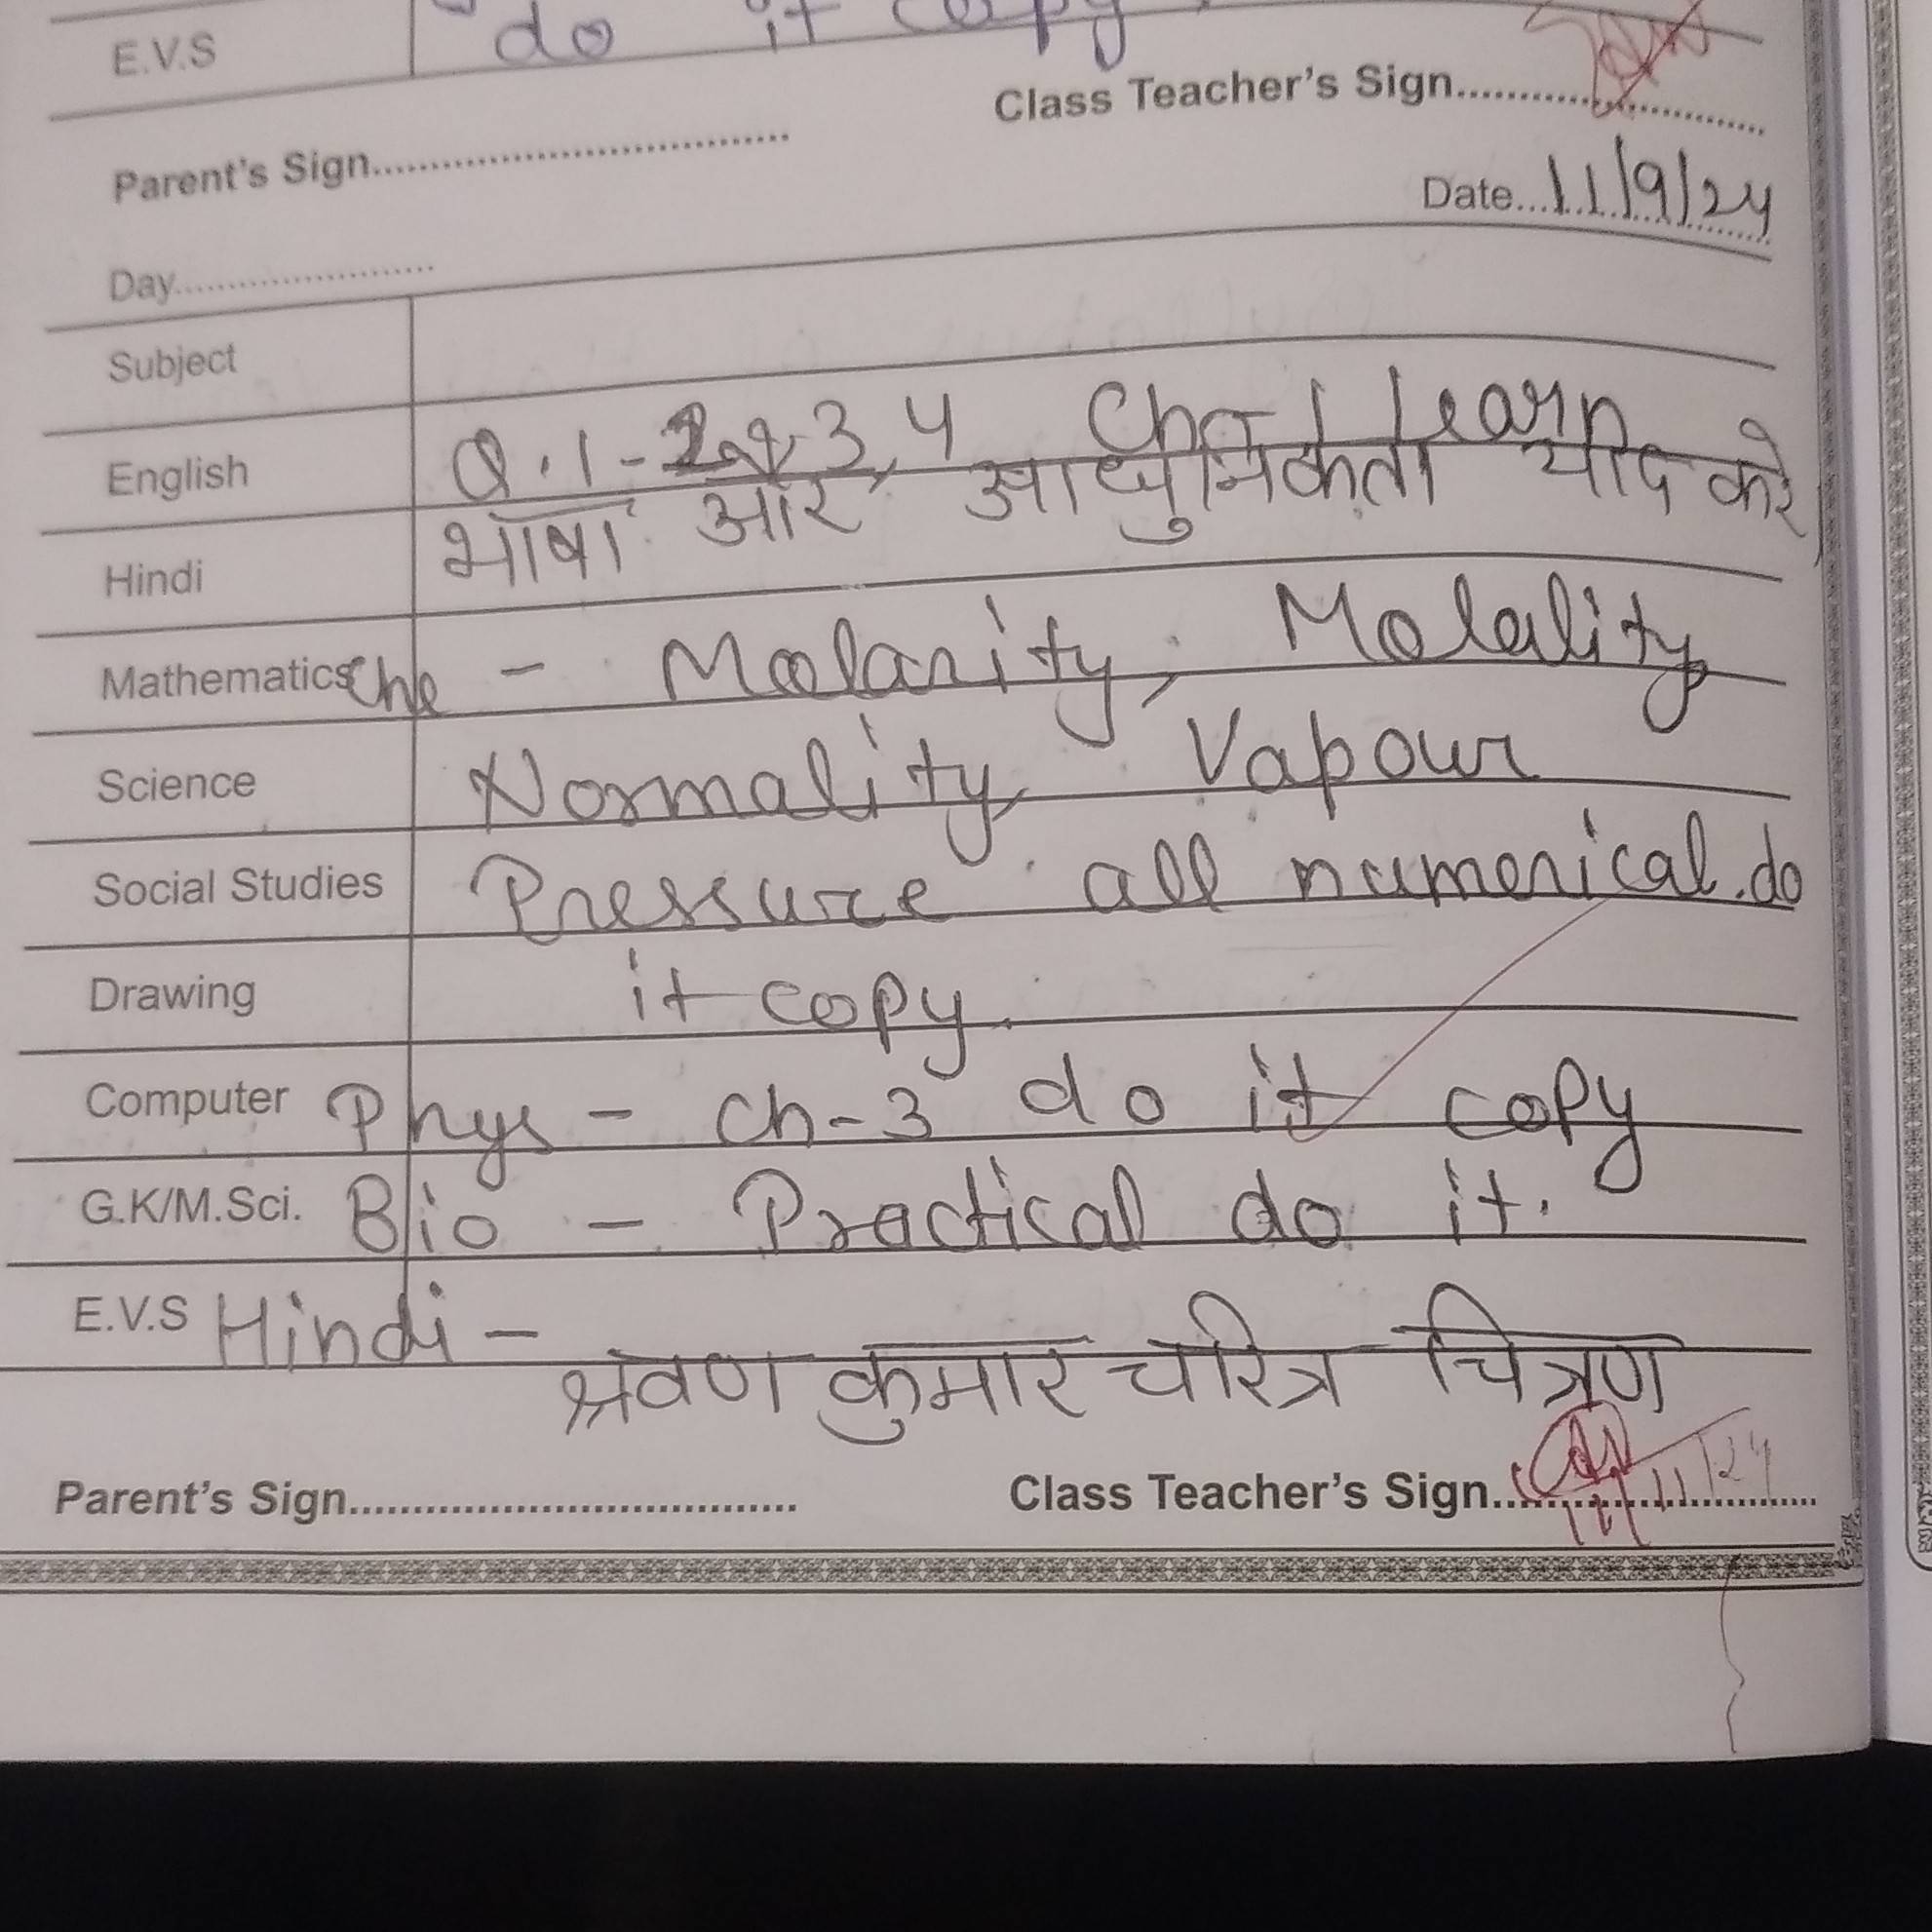 E.V.S do it copy
Class Teacher's Sign
Parent's Sign
Date 11/9/24
Day
Subject
English Q.1- 2, 3, 4 Ch-1 learn
Hindi भाषा और आधुनिकता याद करे
Mathematics Che - Molarity, Molality
Science Normality, Vapour
Social Studies Pressure all numerical. do
Drawing it copy.
Computer Phys - Ch-3 do it copy
G.K/M.Sci. Bio - Practical do it.
E.V.S Hindi - श्रवण कुमार चरित्र चित्रण
Parent's Sign Class Teacher's Sign